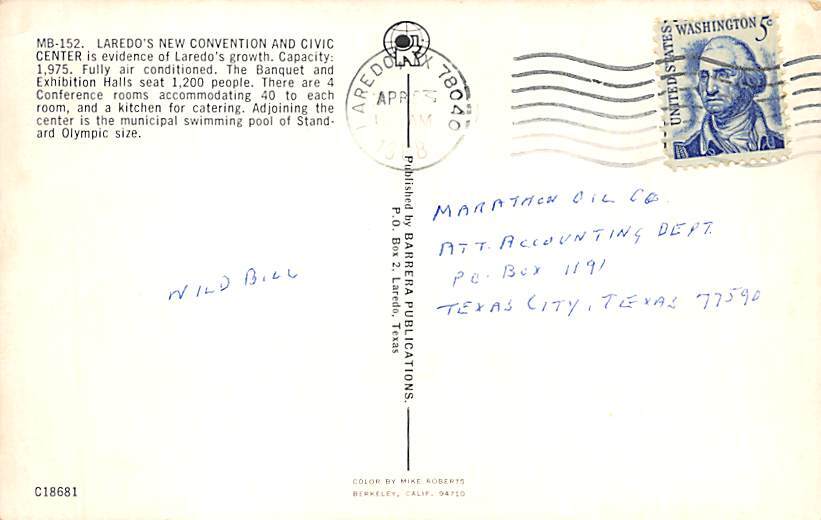 MB-152. LAREDO'S NEW CONVENTION AND CIVIC
CENTER is evidence of Laredo's growth. Capacity:
1,975. Fully air conditioned. The Banquet and
Exhibition Halls seat 1,200 people. There are 4
Conference rooms accommodating 40 to each
room, and a kitchen for catering. Adjoining the
center is the municipal swimming pool of Stand-
ard Olympic size.
LAREDO, TX 78040
APR
AM
UNITED STATES
WASHINGTON 5c
MARATHON OIL CO.
ATT. ACCOUNTING DEPT.
P.O. BOX 1191
TEXAS CITY, TEXAS 77590
WILD BILL
Published by BARRERA PUBLICATIONS.
P.O. Box 2, Laredo, Texas
C18681
COLOR BY MIKE ROBERTS
BERKELEY, CALIF. 94710